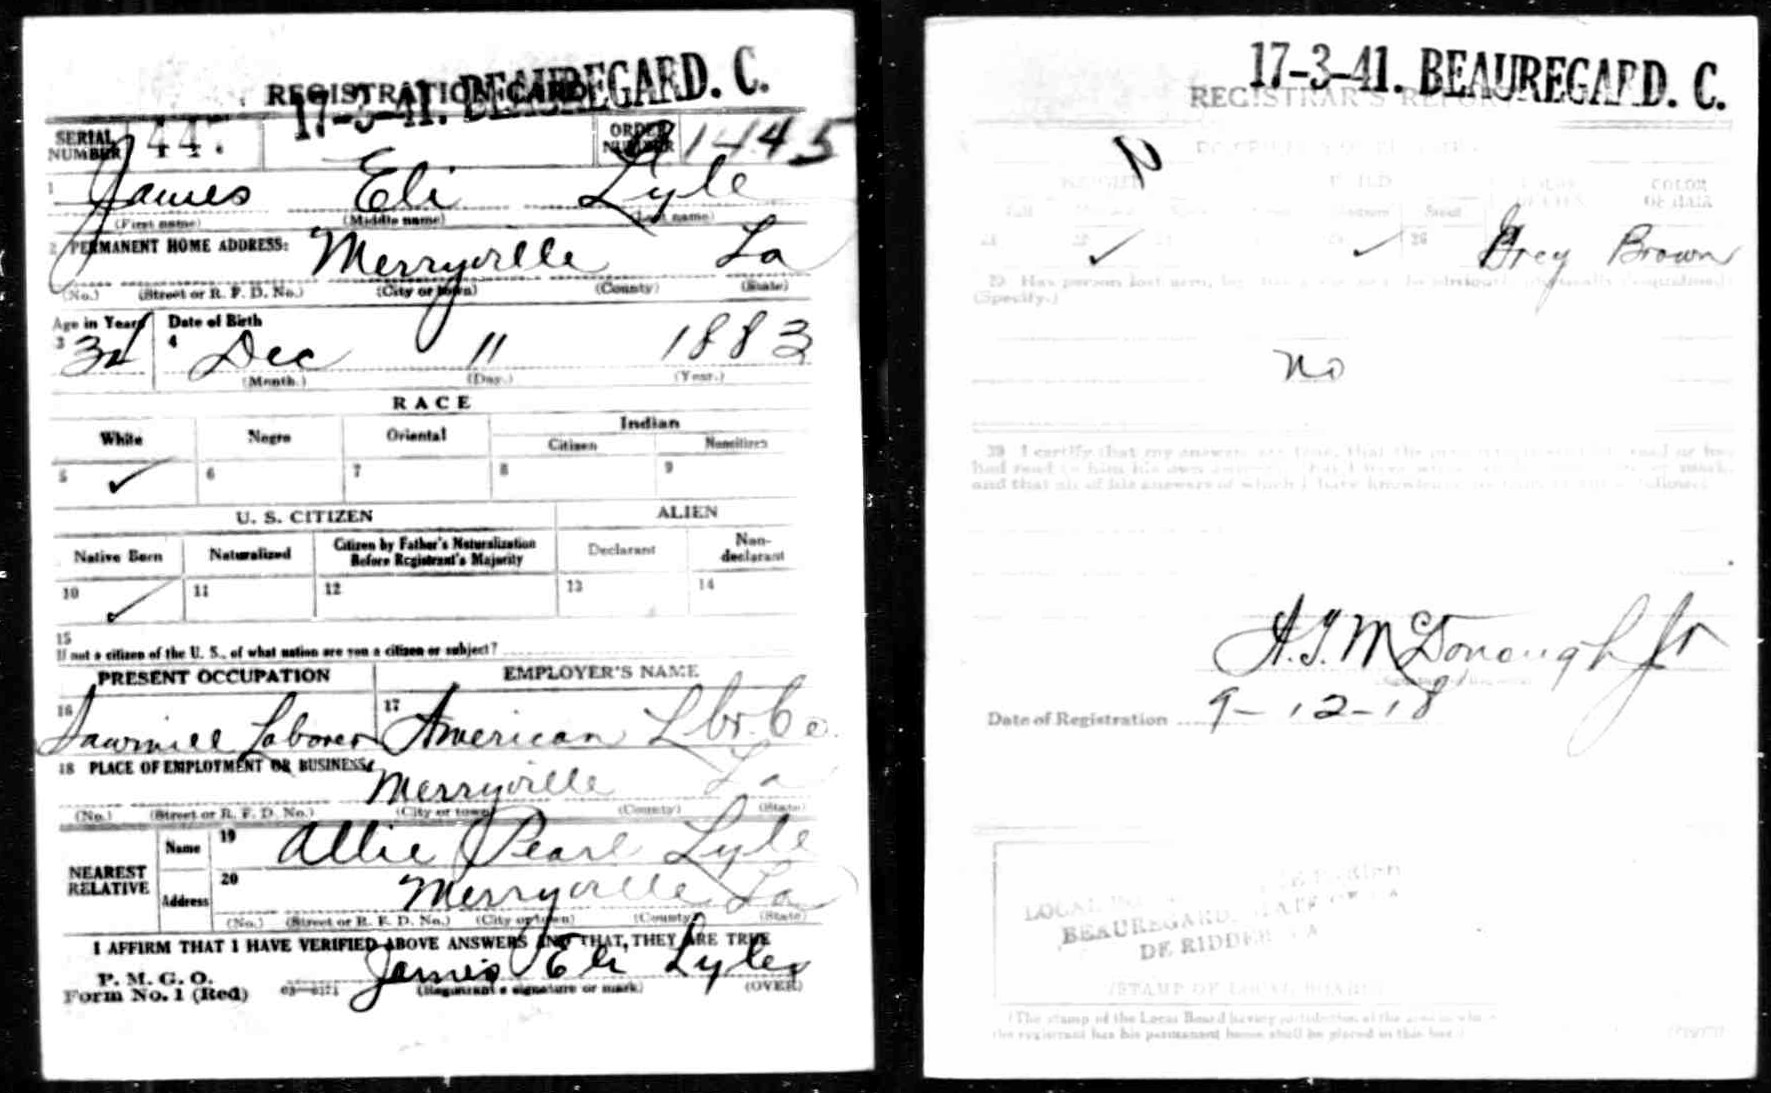 REGISTRATION CARD
17-3-41. BEAUREGARD. C.
SERIAL NUMBER 447
ORDER NUMBER 1445
1 James Eli Lyle
(First name) (Middle name) (Last name)
2 PERMANENT HOME ADDRESS: Merryville La
(No.) (Street or R. F. D. No.) (City or town) (County) (State)
Age in Years Date of Birth
3 34 4 Dec 11 1883
(Month.) (Day.) (Year.)
RACE
White Negro Oriental Indian
Citizen Noncitizen
5 ✓ 6 7 8 9
U. S. CITIZEN ALIEN
Native Born Naturalized Citizen by Father's Naturalization Before Registrant's Majority Declarant Non-declarant
10 ✓ 11 12 13 14
15
If not a citizen of the U. S., of what nation are you a citizen or subject?
PRESENT OCCUPATION EMPLOYER'S NAME
16 Sawmill Laborer 17 American Lbr. Co.
18 PLACE OF EMPLOYMENT OR BUSINESS: Merryville La
(No.) (Street or R. F. D. No.) (City or town) (County) (State)
NEAREST RELATIVE
Name 19 Allie Pearl Lyle
Address 20 Merryville La
(No.) (Street or R. F. D. No.) (City or town) (County) (State)
I AFFIRM THAT I HAVE VERIFIED ABOVE ANSWERS AND THAT THEY ARE TRUE
P. M. G. O.
Form No. 1 (Red) 03-6171 James Eli Lyles
(Registrant's signature or mark) (OVER)
17-3-41. BEAUREGARD. C.
REGISTRAR'S REPORT
HEIGHT BUILD COLOR OF EYES COLOR OF HAIR
Stout
✓ ✓ Grey Brown
29 Has person lost arm, leg
(Specify.)
No
30 I certify that my answers are true, that the person
had read to him his own
and that all of his answers of which I have knowledge
A. J. McDonough Jr
Date of Registration 9-12-18
LOCAL
BEAUREGARD, STATE OF LA
DE RIDDER LA
(STAMP OF LOCAL BOARD)
(The stamp of the Local Board having jurisdiction of the area in which
the registrant has his permanent home shall be placed in this box.)